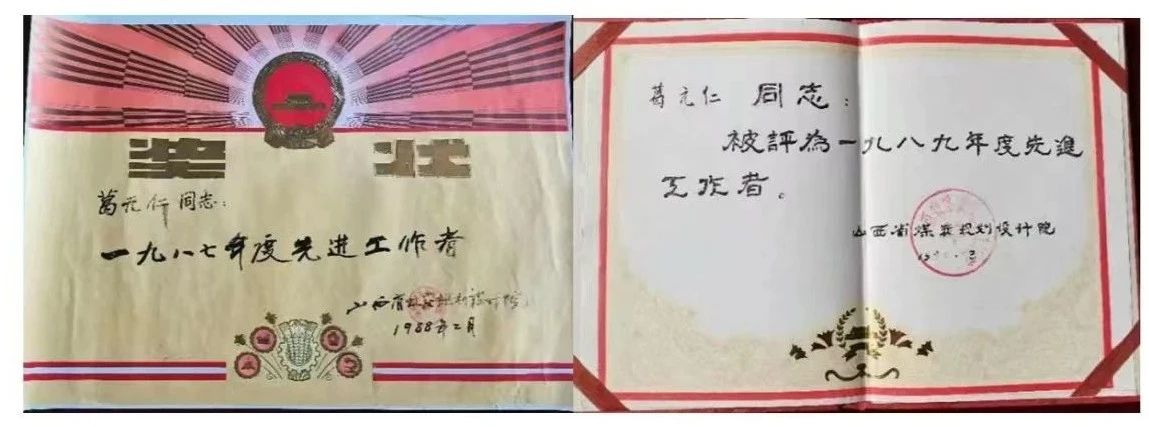 奖 状
葛元仁同志:
一九八七年度先进工作者
山西省煤炭规划设计院
1988年二月
葛元仁 同志:
被評為一九八九年度先進
工作者。
山西省煤炭规划设计院